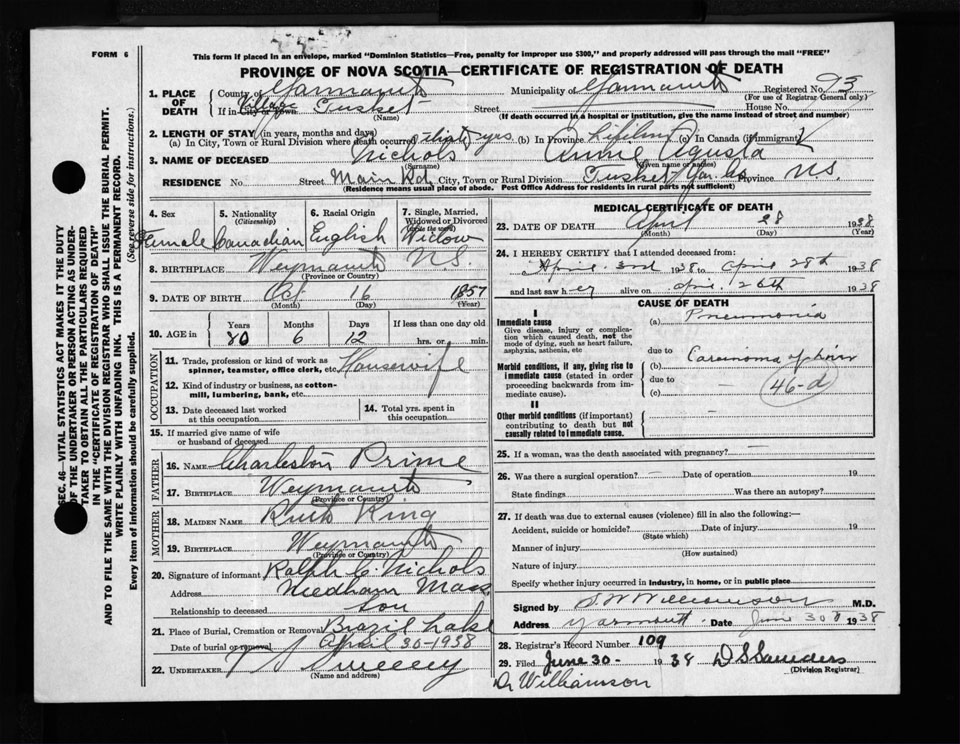 FORM 6
This form if placed in an envelope, marked "Dominion Statistics—Free, penalty for improper use $300," and properly addressed will pass through the mail "FREE"
PROVINCE OF NOVA SCOTIA—CERTIFICATE OF REGISTRATION OF DEATH
1. PLACE OF DEATH
County of Yarmouth Municipality of Yarmouth Registered No. 93
(For use of Registrar General only)
If in City or Town Village Tusket Street House No.
(Name) (If death occurred in a hospital or institution, give its name instead of street and number)
2. LENGTH OF STAY (in years, months and days)
(a) In City, Town or Rural Division where death occurred thirty yrs. (b) In Province Lifetime (c) In Canada (if immigrant)
3. NAME OF DECEASED Nichols Annie Agusta
(Surname) (Given name or names)
RESIDENCE No. Street Main Rd. City, Town or Rural Division Tusket Yar. Co. Province N.S.
(Residence means usual place of abode. Post Office Address for residents in rural parts not sufficient)
4. Sex
Female
5. Nationality
(Citizenship)
Canadian
6. Racial Origin
English
7. Single, Married, Widowed or Divorced
(write the word)
Widow
8. BIRTHPLACE Weymouth N.S.
(Province or Country)
9. DATE OF BIRTH Oct 16 1857
(Month) (Day) (Year)
10. AGE in
Years Months Days If less than one day old
80 6 12 hrs. or min.
OCCUPATION
11. Trade, profession or kind of work as spinner, teamster, office clerk, etc. Housewife
12. Kind of industry or business, as cotton-mill, lumbering, bank, etc.
13. Date deceased last worked at this occupation
14. Total yrs. spent in this occupation
15. If married give name of wife or husband of deceased
FATHER
16. Name Charleston Prime
17. Birthplace Weymouth
(Province or Country)
MOTHER
18. Maiden Name Ruth King
19. Birthplace Weymouth
(Province or Country)
20. Signature of informant Ralph C. Nichols
Address Needham Mass
Relationship to deceased Son
21. Place of Burial, Cremation or Removal Brazil Lake
Date of burial or removal April 30-1938
22. Undertaker Sweeny
(Name and address)
MEDICAL CERTIFICATE OF DEATH
23. DATE OF DEATH April 28 1938
(Month) (Day) (Year)
24. I HEREBY CERTIFY that I attended deceased from:
April 3rd 1938 to April 28th 1938
and last saw her alive on April 26th 1938
CAUSE OF DEATH
I
Immediate cause
Give disease, injury or complication which caused death, not the mode of dying, such as heart failure, asphyxia, asthenia, etc
(a) Pneumonia
due to
Morbid conditions, if any, giving rise to immediate cause (stated in order proceeding backwards from immediate cause).
(b) Carcinoma of liver
due to
(c)
46-d
II
Other morbid conditions (if important) contributing to death but not causally related to immediate cause.
25. If a woman, was the death associated with pregnancy?
26. Was there a surgical operation? Date of operation 19
State findings Was there an autopsy?
27. If death was due to external causes (violence) fill in also the following:—
Accident, suicide or homicide? Date of injury 19
(State which)
Manner of injury
(How sustained)
Nature of injury
Specify whether injury occurred in industry, in home, or in public place
Signed by S W Williamson M.D.
Address Yarmouth Date June 30 1938
28. Registrar's Record Number 109
29. Filed June 30 - 1938 D S Saunders
(Division Registrar)
Dr Williamson
SEC. 46—VITAL STATISTICS ACT MAKES IT THE DUTY
OF THE UNDERTAKER OR PERSON ACTING AS UNDER-
TAKER TO OBTAIN ALL THE PARTICULARS REQUIRED
IN THE "CERTIFICATE OF REGISTRATION OF DEATH"
AND TO FILE THE SAME WITH THE DIVISION REGISTRAR WHO SHALL ISSUE THE BURIAL PERMIT.
WRITE PLAINLY WITH UNFADING INK. THIS IS A PERMANENT RECORD.
Every item of information should be carefully supplied. (See reverse side for instructions.)